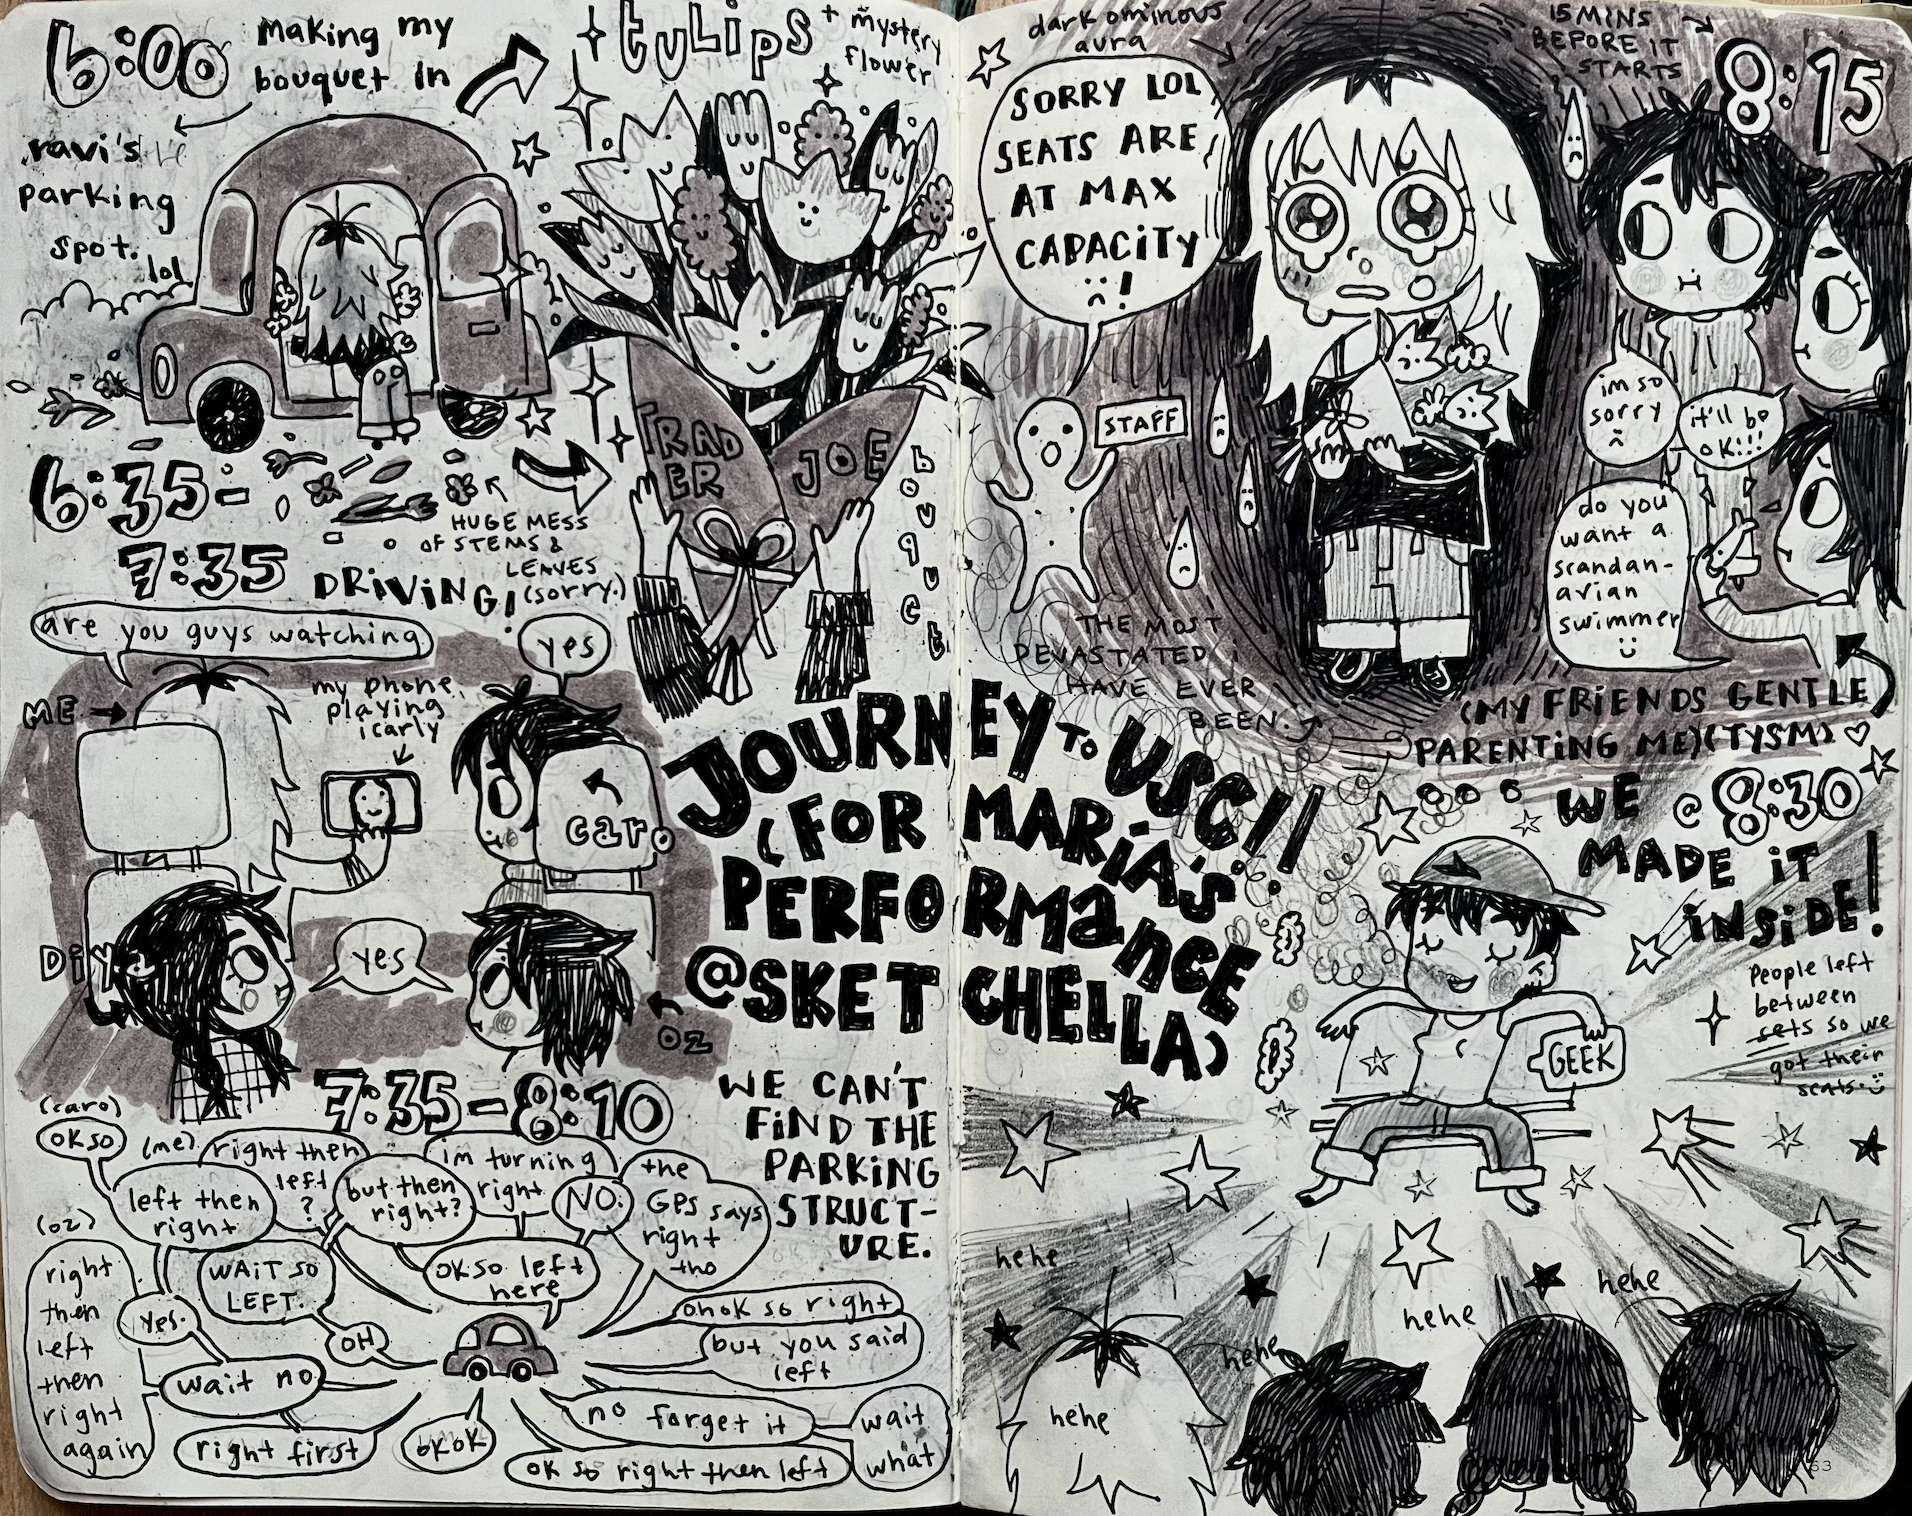 6:00
making my
bouquet in
ravi's
parking
spot.
lol
tulips
+ mystery
flower
TRAD
ER
JOE
bouquet
6:35-
7:35
DRIVING!
HUGE MESS
OF STEMS &
LEAVES
(sorry.)
are you guys watching
yes
ME →
my phone
playing
icarly
car.
DIYA
yes
OZ
JOURNEY TO USC!!
(FOR MARiA'S
PERFORMaNCE
@SKETCHELLA)
7:35-8:10
WE CAN'T
FIND THE
PARKING
STRUCT-
URE.
(caro)
OK SO
(me)
right then
left
?
left then
right
but then
right?
im turning
right
NO.
the
GPS says
right
tho
(oz)
right
then
left
then
right
again
yes.
WAIT SO
LEFT.
OH
OK SO left
here
ohok so right
but you said
left
wait no
right first
OKOK
no forget it
wait
what
OK so right then left
dark ominous
aura
SORRY LOL
SEATS ARE
AT MAX
CAPACITY
:( !
STAFF
THE MOST
DEVASTATED i
HAVE EVER
BEEN.
15 MINS
BEFORE IT
STARTS
8:15
im so
sorry
it'll be
OK!!!
do you
want a
scandan-
avian
swimmer
(MY FRIENDS GENTLE
PARENTING ME)(TYSM) ♡
WE @ 8:30
MADE iT
iNSiDE!
People left
between
sets so we
got their
seats.
GEEK
hehe
hehe
hehe
hehe
hehe
53